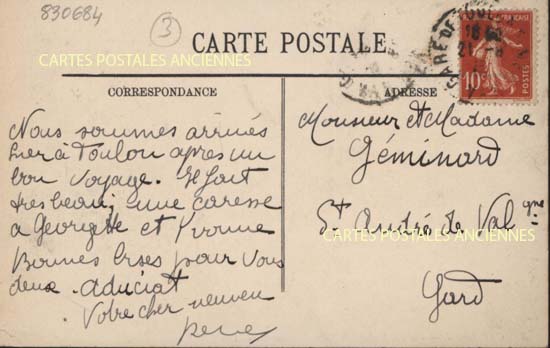 830684
3
CARTE POSTALE
CARTES POSTALES ANCIENNES
GARE DE TOUL
10c
POSTES
CORRESPONDANCE
ADRESSE
Nous sommes arrivés
hier à Toulon après un
bon voyage. Il fait
très beau, une caresse
a Georgette et Yvonne
Bonnes bises pour vous
deux. aduciat
Votre cher neuveu
Monsieur et Madame
Géminard
St André de Valgne
CARTES POSTALES ANCIENNES
Gard